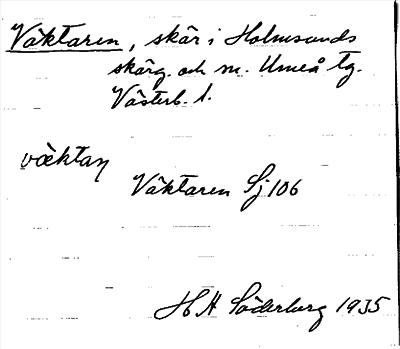 Väktaren, skär i Holmsunds
skärg. och m. Umeå tg.
Västerb. l.
väktaṇ
Väktaren Sj 106
H H Söderberg 1935